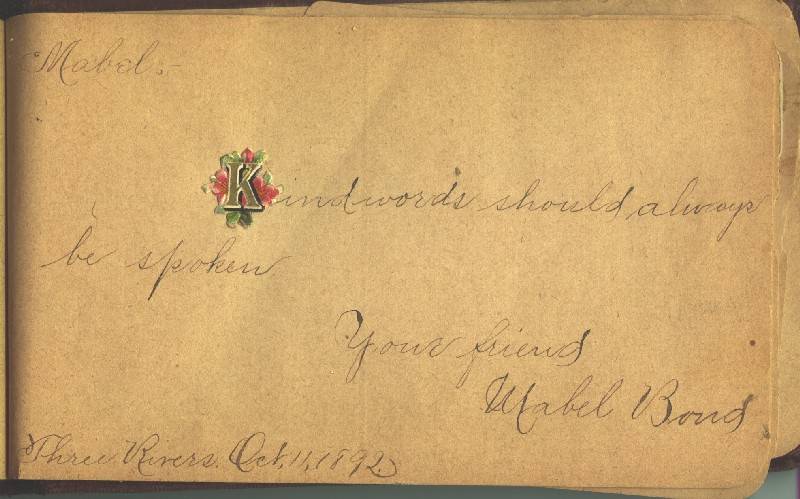 Mabel:-
Kind words should always
be spoken
Your friend
Mabel Bond
Three Rivers. Oct. 11, 1892.